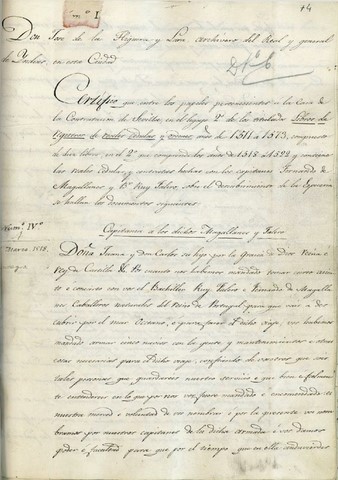 74
Nº I
Don Jose de la Higuera y Lara Archivero del Real y general
de Indias en esta Ciudad
Certifico que entre los papeles pertenecientes a la Casa de
la Contratacion de Sevilla, en el legajo 2º de los titulados Libros de
de reales cedulas y años de 1511 a 1573, compuesto
de diez libros, en el 2º que comprende los años de 1518 a 1522 y contiene
las reales cedulas y contratos hechos con los capitanes Fernando de
Magallanes y Br. Ruy Falero sobre el descubrimiento de la Especeria
se hallan los documentos siguientes
Num.º IVº
Capitania a los dichos Magallanes y Falero
Marzo 1518.
Doña Juana y don Carlos su hijo por la gracia de Dios Reina e
Rey de Castilla de Por cuanto nos habemos mandado tomar cierto asiento
e concierto con vos el Bachiller Ruy Falero e Fernando de Magallanes
Caballeros naturales del Reino de Portugal para que vais a descobrir
por el mar Oceano, e para facer el dicho viaje vos habemos
mandado armar cinco navios con la gente y mantenimientos e otras
cosas necesarias para el dicho viaje, confiando de vosotros que sois
tales personas que guardareis nuestro servicio e que bien e fielmente
entendereis en lo que por nos vos fuere mandado e encomendado es
nuestra merced e voluntad de vos nombrar e por la presente vos nombramos
por nuestros capitanes de la dicha armada e vos damos
poder e facultad para que por el tiempo que en ella anduvierdes